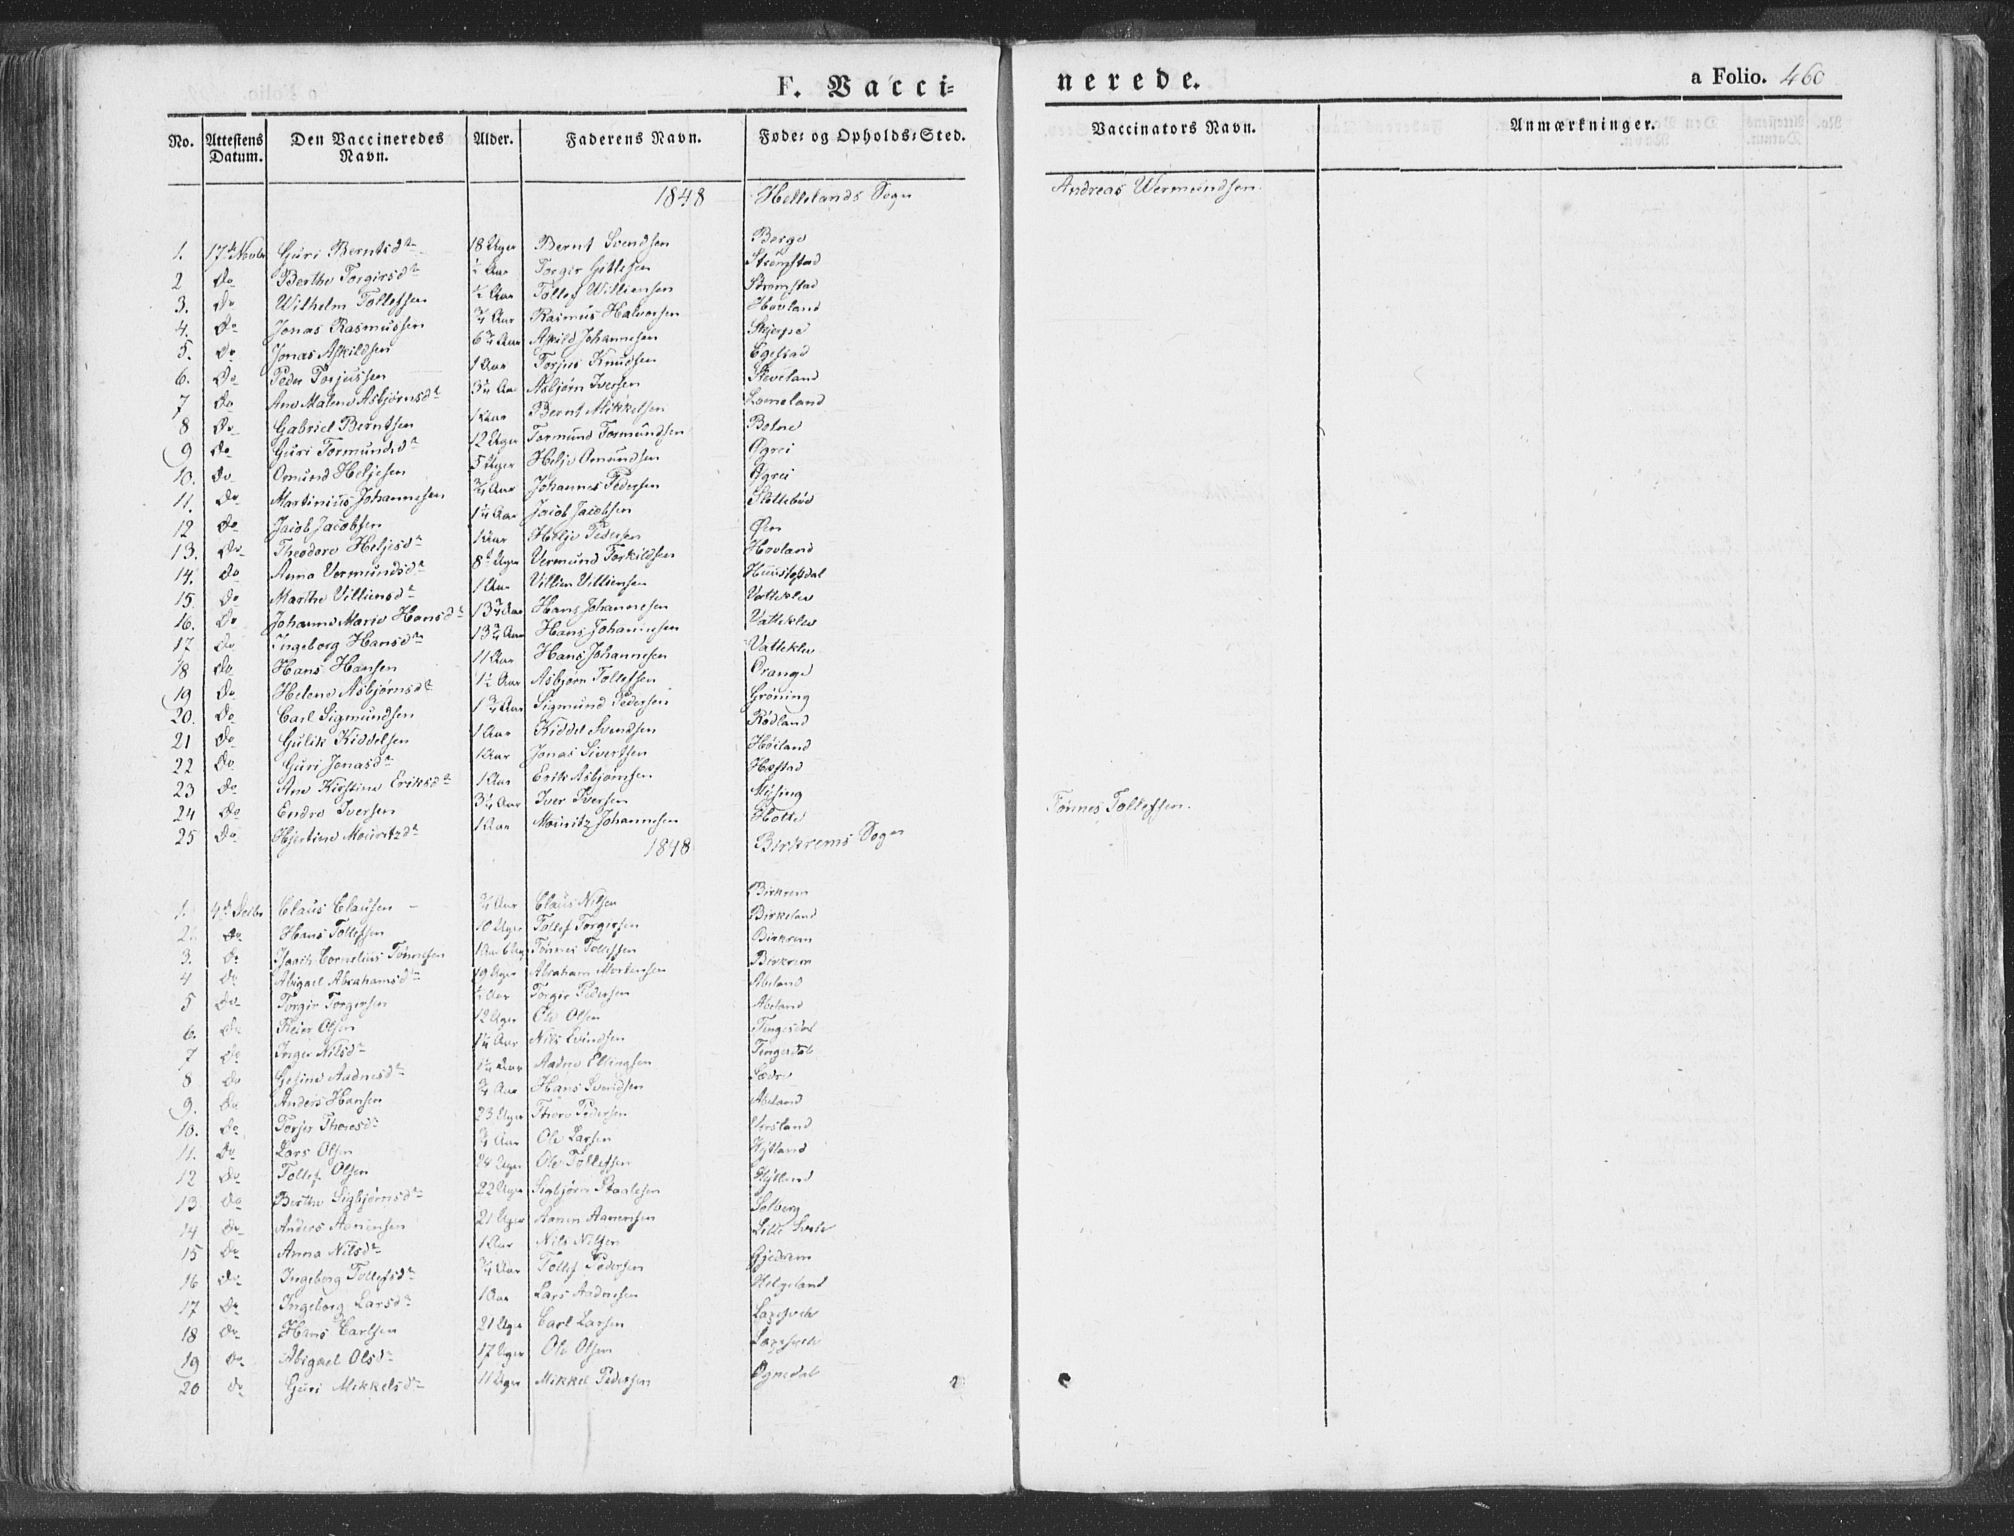 F. Vacci=
nerede.
a Folio. 460
No. Attestens Datum. Den Vaccineredes Navn. Alder. Faderens Navn. Føde= og Opholds=Sted. Vaccinators Navn. Anmærkninger.
1848 Hellelands Sogn Andreas Wermundsen
1. 17de Novbr Guri Berntsdr 18 Uger Bernt Svendsen Berge
2 Do Berthe Torgersdr ½ Aar Torger Gitlesen Strømstad
3. Do Wilhelm Tollefsen ½ Aar Tollef Williensen Strømstad
4. Do Jonas Rasmussen ¾ Aar Rasmus Halvorsen Hovland
5. Do Jonas Askildsen 6¾ Aar Askild Johannesen Skjerpe
6. Do Peder Torjussen 1 Aar Torjus Knudsen Egestad
7 Do Ane Malene Asbjørnsdr Asbjørn Iversen Steveland
8 Do Gabriel Berntsen 1 Aar Bernt Mikkelsen
9 Do Guri Tormundsdr 12 Uger Tormund Tormundsen Botne
10. Do Omund Heljesen 5 Uger Helje Omundsen Øgrei
11. Do Martinius Johannesen ¾ Aar Johannes Pedersen Øgrei
12 Do Jacob Jacobsen Jacob Jacobsen Slettebøe
13. Do Theodore Heljesdr 1 Aar Helje Pedersen Øen
14. Do Anna Vermundsdr 8 Uger Vermund Torkildsen Hovland
15. Do Marthe Villiensdr 1 Aar Villien Villiensen
16. Do Johanne Marie Hansdr 13¾ Aar Hans Johannesen Vatteklev
17 Do Ingeborg Hansdr 13¾ Aar Hans Johannesen Vatteklev
18 Do Hans Hansen 11 Aar Hans Johannesen Vatteklev
19 Do Helene Asbjørnsdr 1½ Aar Asbjørn Tollefsen Orange
20. Do Carl Sigmundsen 1¾ Aar Sigmund Pedersen Grøning
21 Do Gulik Kiddelsen 1 Aar Kiddel Svendsen Rødland
22 Do Guri Jonasdr 1 Aar Jonas Sivertsen Høiland
23 Do Ane Kirstine Eriksdr 1 Aar Erik Asbjørnsen Hæstad
24 Do Endre Iversen Iver Iversen Mysing
25 Do Hjertine Mouritzdr 1 Aar Mouritz Johannesen Hotte
Tønnes Tollefsen.
1848 Birkrems Sogn
1. 4de Decbr Claus Clausen ¾ Aar Claus Nilsen Birkrem
2. Do Hans Tollefsen 10 Uger Tollef Torgersen Birkeland
3. Do Isach Cornelius Tønnesen Tønnes Tollefsen Birkrem
4 Do Abigael Abrahamsdr 19 Uger Abraham Mortensen Birkrem
5 Do Torger Torgersen ½ Aar Torger Pedersen Abeland
6. Do Peder Olsen 12 Uger Ole Olsen Abeland
7 Do Inger Nilsdr Nils Svendsen Tingesdal
8 Do Gesine Aadnesdr Aadne Ellingsen Tingesdal
9. Do Anders Hansen ¾ Aar Hans Svendsen Sædre
10. Do Torjer Thoresdr 23 Uger Thore Pedersen Abeland
11. Do Lars Olsen ¾ Aar Ole Larsen Versland
12 Do Tollef Olsen 24 Uger Ole Tollefsen Hytland
13 Do Berthe Sigbjørnsdr 22 Uger Sigbjørn Staalesen Hytland
14 Do Anders Aanensen 21 Uger Aanen Aanensen Solberg
15 Do Anna Nilsdr 1 Aar Nils Nilsen Lille Svele
16 Do Ingeborg Tollefsdr ¾ Aar Tollef Pedersen Gjedrem
17 Do Ingeborg Larsdr 1 Aar Lars Aadnesen Helgeland
18 Do Hans Carlsen 21 Uger Carl Larsen
19 Do Abigael Olsdr 17 Uger Ole Olsen
20 Do Guri Mikkelsdr 11 Uger Mikkel Pedersen Øgnedal